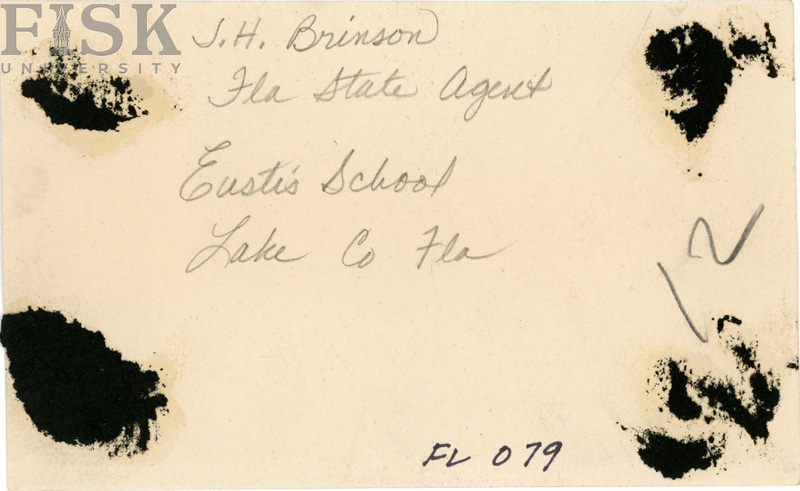 FISK
UNIVERSITY
J.H. Brinson
Fla State Agent
Eustis School
Lake Co Fla
12
FL 079